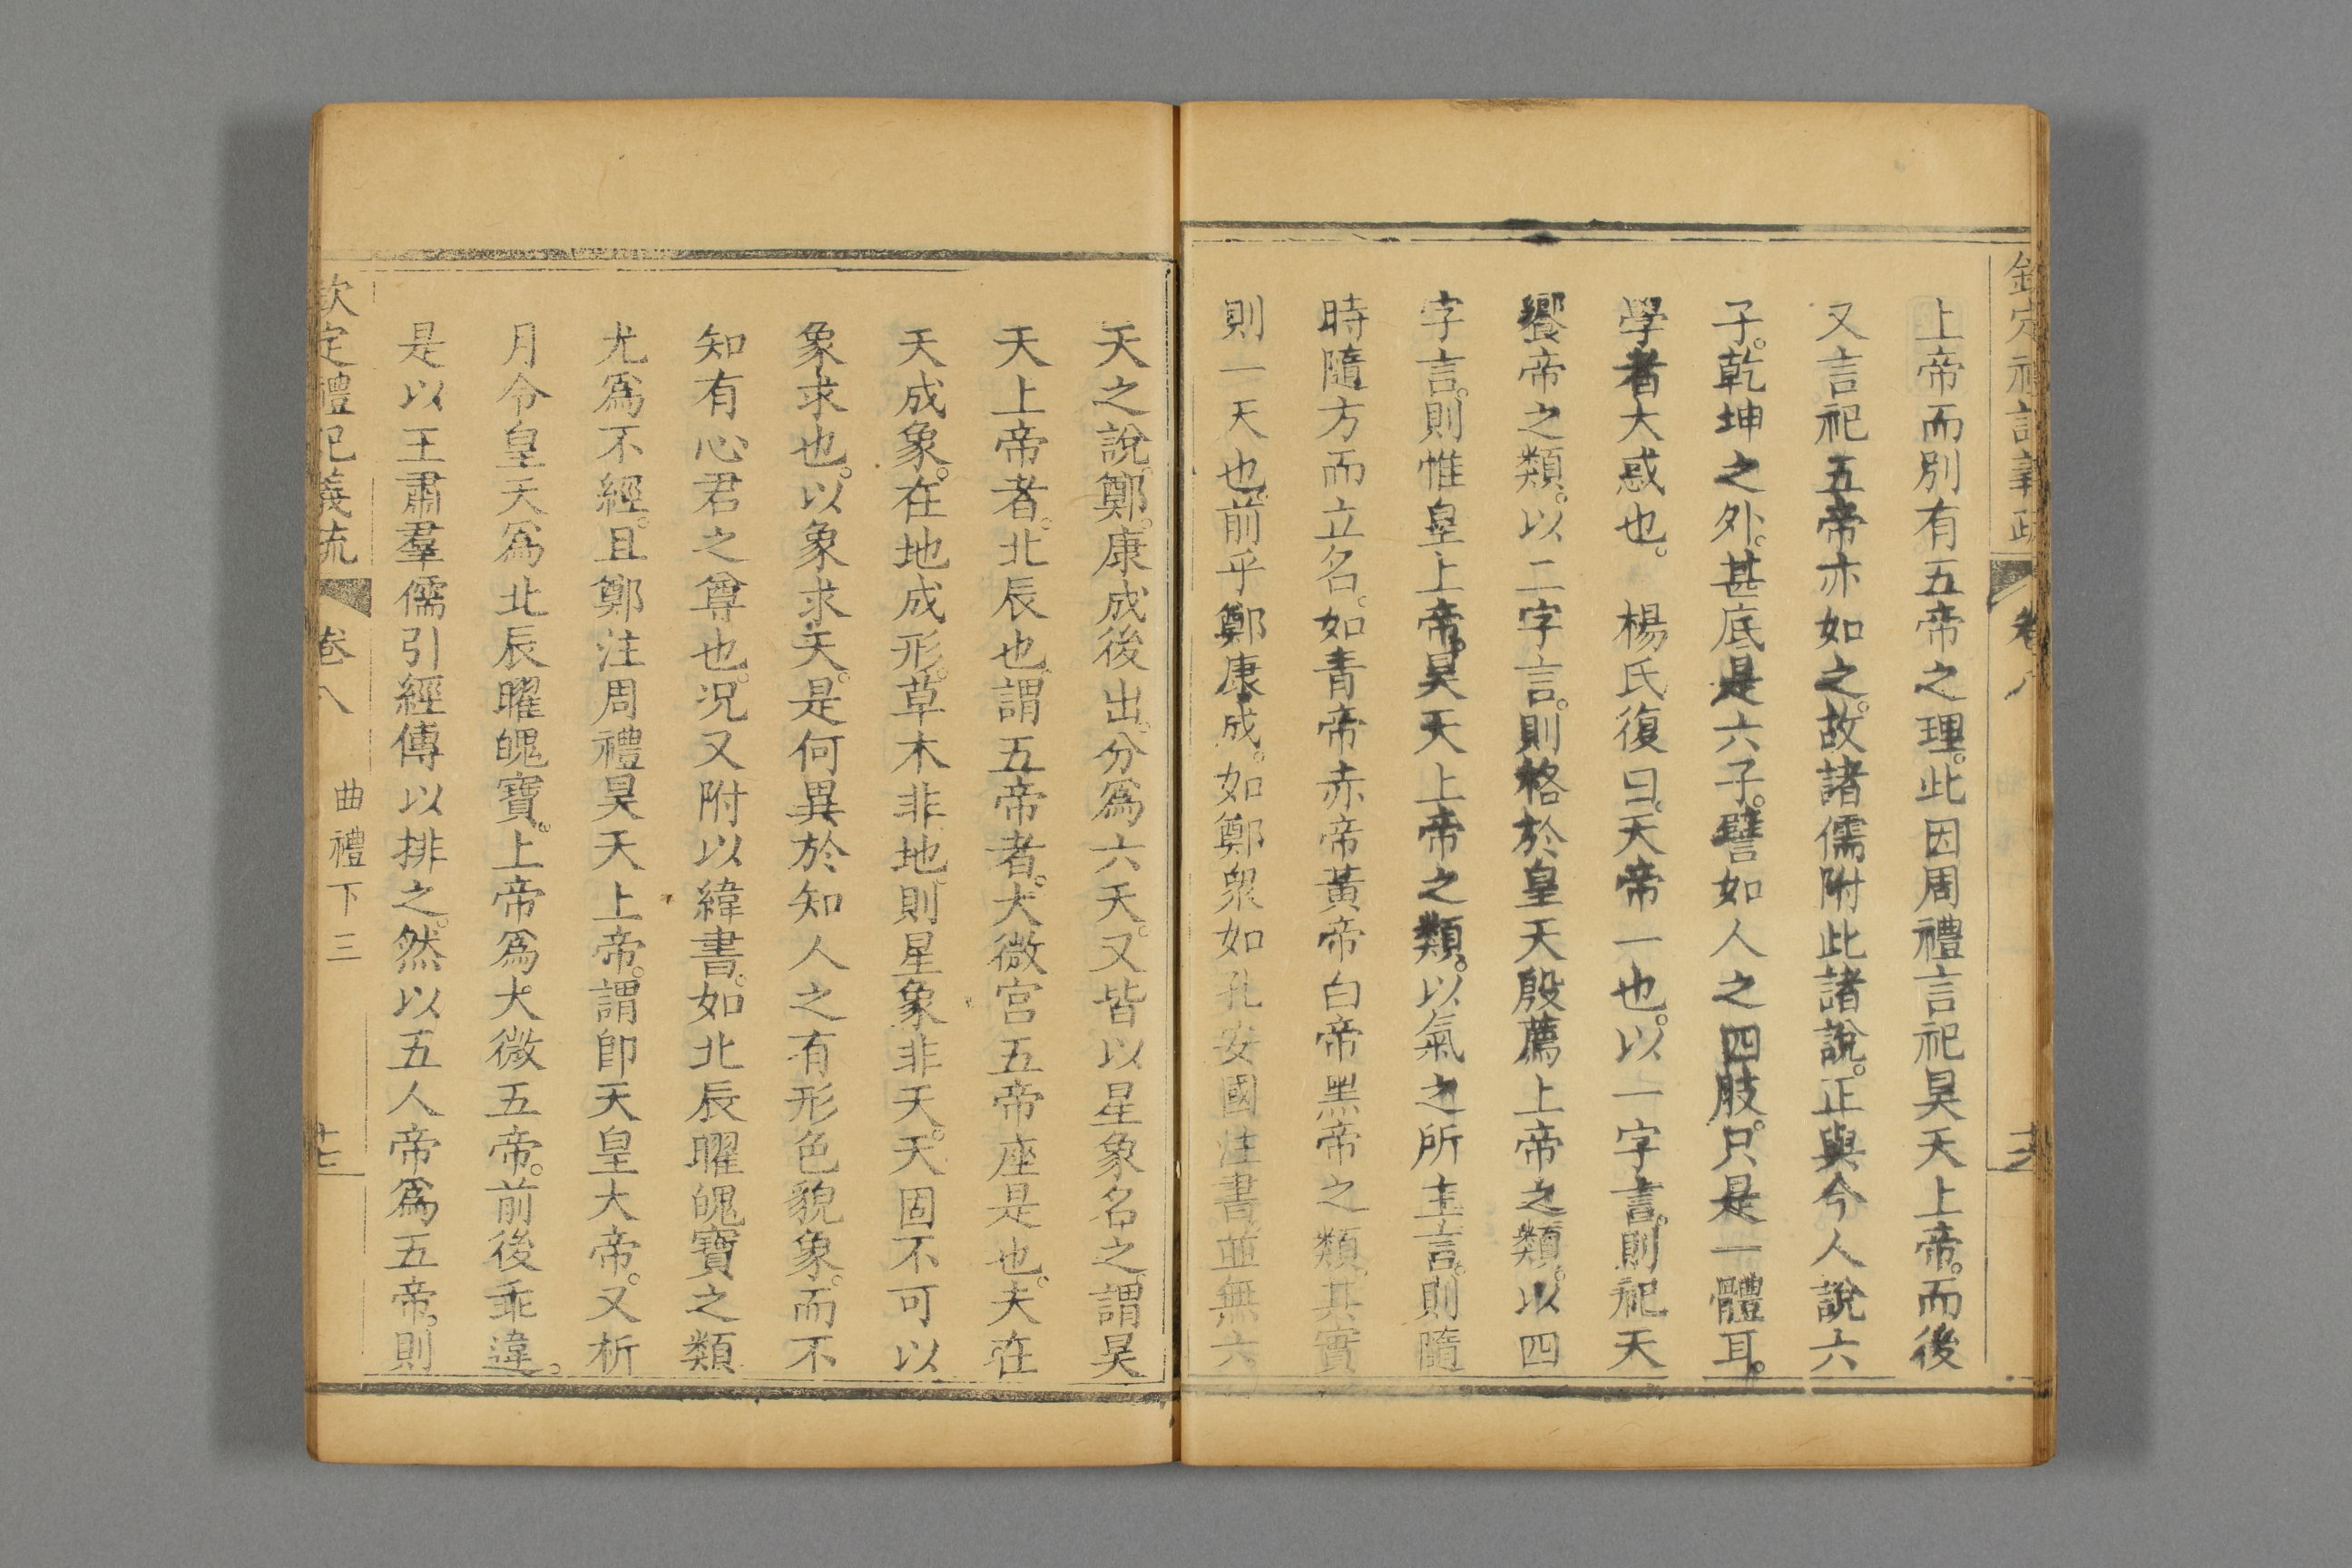 欽定禮記義疏 卷八
上帝而別有五帝之理。此因周禮言祀昊天上帝。而後
又言祀五帝亦如之。故諸儒附此諸說。正與今人說六
子。乾坤之外。甚底是六子。譬如人之四肢。只是一體耳。
學者大惑也。　楊氏復曰。天帝一也。以一字言。則祀天
饗帝之類。以二字言。則格於皇天殷薦上帝之類。以四
字言。則惟皇上帝。昊天上帝之類。以氣之所主言。則隨
時隨方而立名。如青帝赤帝黃帝白帝黑帝之類。其實
則一天也。前乎鄭康成。如鄭衆如孔安國注書並無六
天之說。鄭康成後出。分爲六天。又皆以星象名之。謂昊
天上帝者。北辰也。謂五帝者。大微宮五帝座是也。夫在
天成象。在地成形。草木非地則星象非天。天固不可以
象求也。以象求天。是何異於知人之有形色貌象。而不
知有心君之尊也。況又附以緯書。如北辰曜魄寶之類
尤爲不經。且鄭注周禮昊天上帝。謂卽天皇大帝。又析
月令皇天爲北辰曜魄寶。上帝爲大微五帝。前後乖違。
是以王肅羣儒引經傳以排之。然以五人帝爲五帝。則
欽定禮記義疏 卷八 曲禮下三